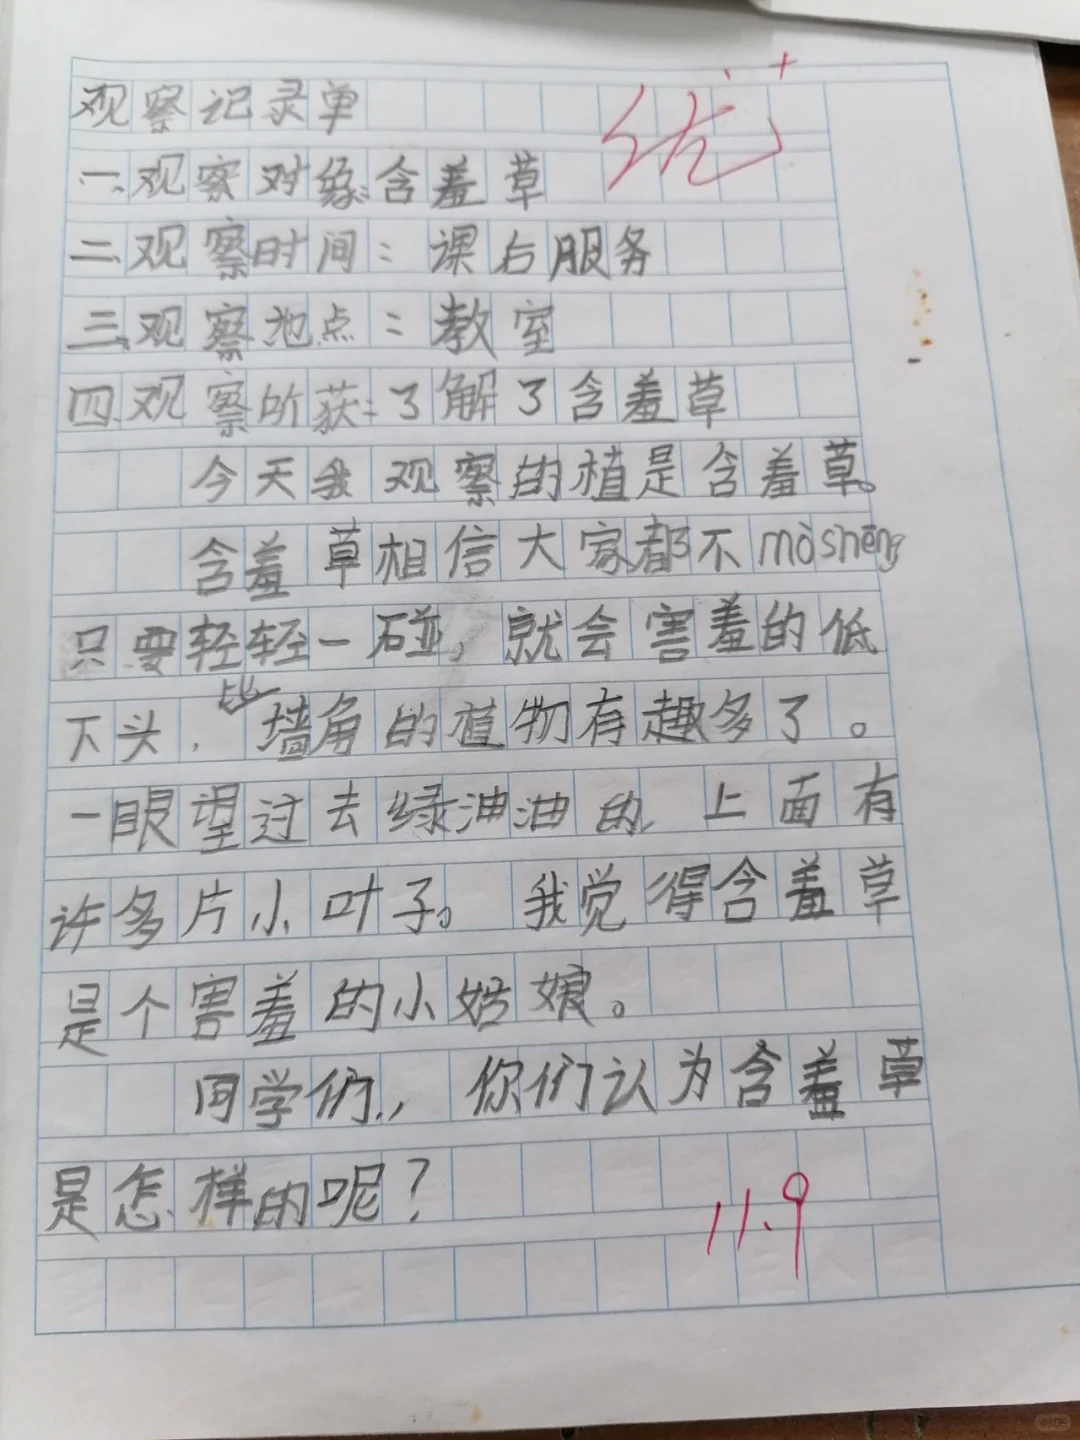 观察记录单
优+
一、观察对缘:含羞草
二、观察时间:课后服务
三、观察地点:教室
四、观察所获:了解了含羞草
今天我观察的植是含羞草。
含羞草相信大家都不mòshēng
只要轻轻一碰,就会害羞的低
下头,比墙角的植物有趣多了。
一眼望过去绿油油的,上面有
许多片小叶子。我觉得含羞草
是个害羞的小姑娘。
同学们,你们认为含羞草
是怎样的呢?
11.9
小红书